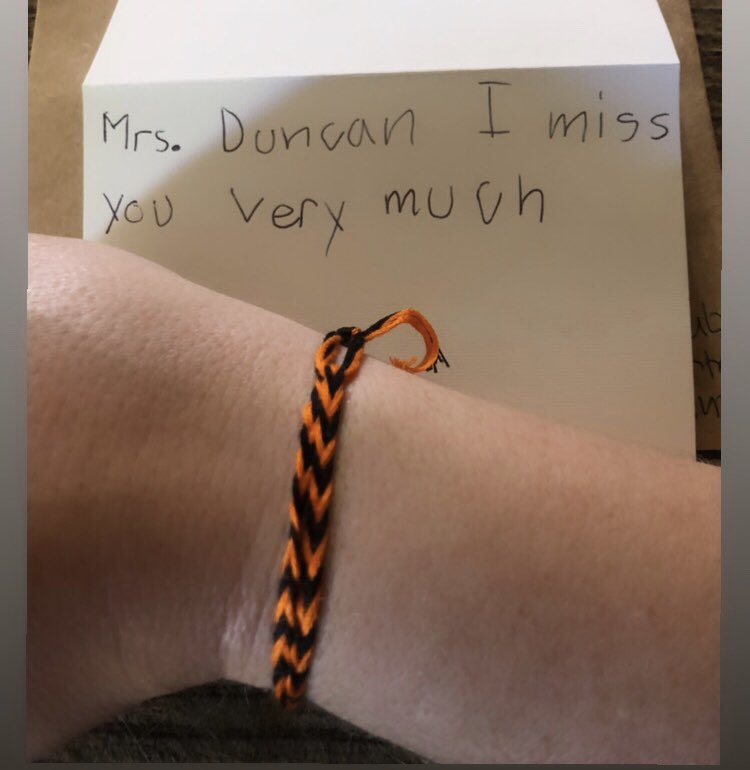 Mrs. Duncan I miss
you very much